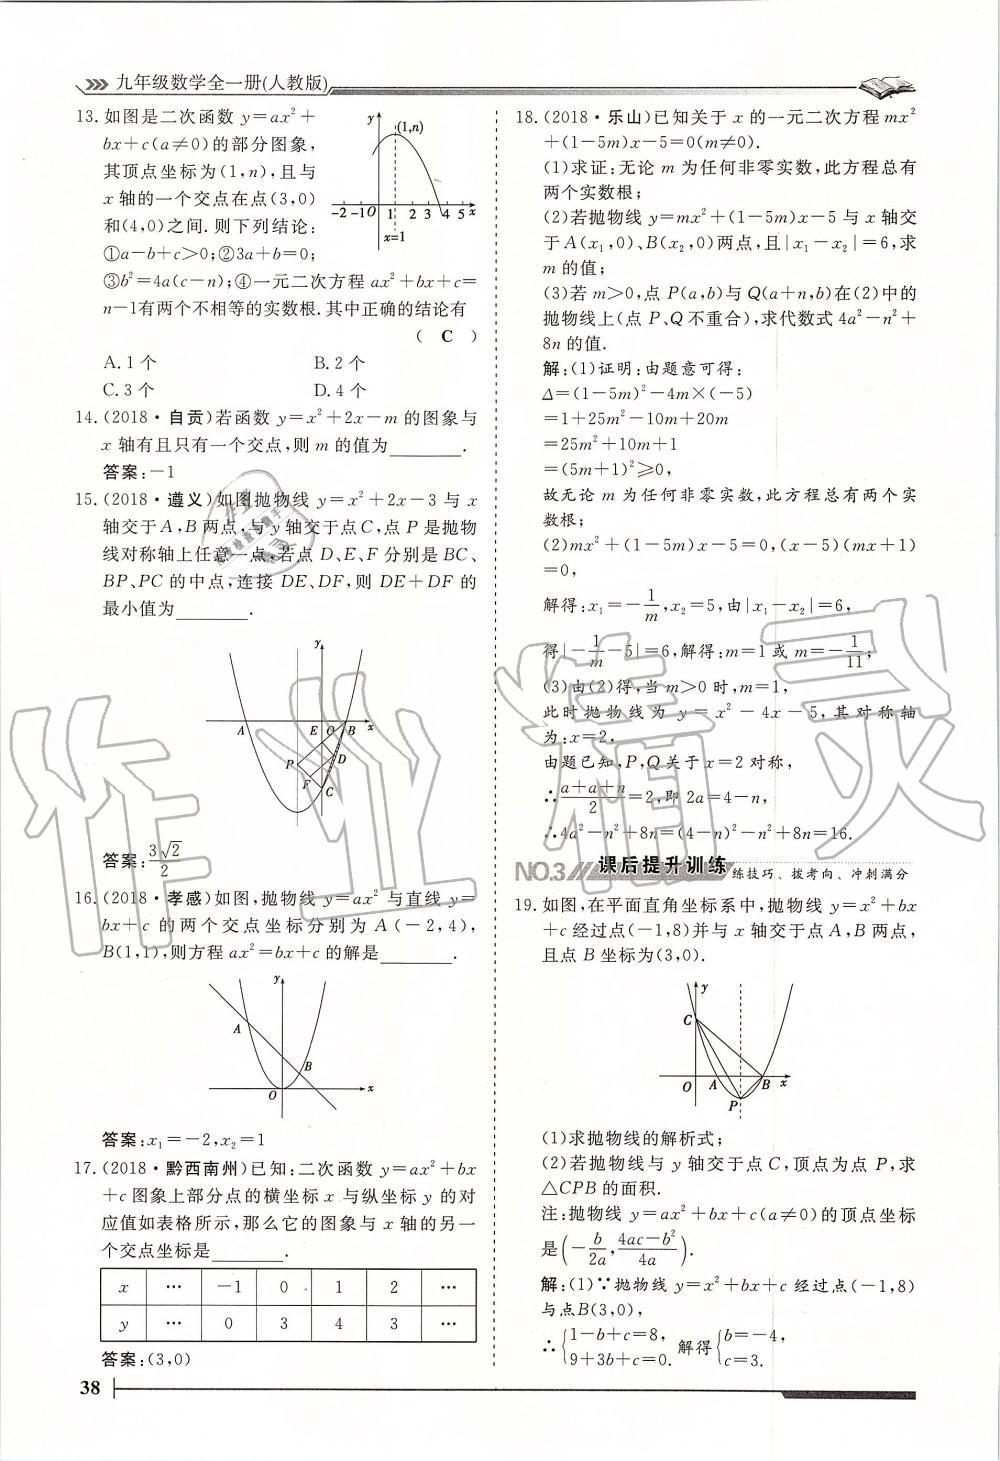 九年级数学全一册(人教版)
13. 如图是二次函数 y=ax²+
bx+c(a≠0)的部分图象,
其顶点坐标为(1,n),且与
x 轴的一个交点在点(3,0)
和(4,0)之间.则下列结论:
①a-b+c>0;②3a+b=0;
③b²=4a(c-n);④一元二次方程 ax²+bx+c=
n-1有两个不相等的实数根.其中正确的结论有
( C )
y
(1,n)
-2 -1 O 1 2 3 4 5 x
x=1
A. 1 个 B. 2 个
C. 3 个 D. 4 个
14. (2018·自贡)若函数 y=x²+2x-m 的图象与
x 轴有且只有一个交点,则 m 的值为________.
答案:-1
15. (2018·遵义)如图抛物线 y=x²+2x-3 与 x
轴交于 A,B 两点,与 y 轴交于点 C,点 P 是抛物
线对称轴上任意一点,若点 D、E、F 分别是 BC、
BP、PC 的中点,连接 DE、DF,则 DE+DF 的
最小值为________.
y
A E O B x
P D
F C
答案:3√2/2
16. (2018·孝感)如图,抛物线 y=ax² 与直线 y=
bx+c 的两个交点坐标分别为 A(-2,4),
B(1,1),则方程 ax²=bx+c 的解是________.
y
A
B
O x
答案:x₁=-2,x₂=1
17. (2018·黔西南州)已知:二次函数 y=ax²+bx
+c 图象上部分点的横坐标 x 与纵坐标 y 的对
应值如表格所示,那么它的图象与 x 轴的另一
个交点坐标是________.
x … -1 0 1 2 …
y … 0 3 4 3 …
答案:(3,0)
38
18. (2018·乐山)已知关于 x 的一元二次方程 mx²
+(1-5m)x-5=0(m≠0).
(1)求证:无论 m 为任何非零实数,此方程总有
两个实数根;
(2)若抛物线 y=mx²+(1-5m)x-5 与 x 轴交
于 A(x₁,0)、B(x₂,0)两点,且|x₁-x₂|=6,求
m 的值;
(3)若 m>0,点 P(a,b)与 Q(a+n,b)在(2)中的
抛物线上(点 P、Q 不重合),求代数式 4a²-n²+
8n 的值.
解:(1)证明:由题意可得:
Δ=(1-5m)²-4m×(-5)
=1+25m²-10m+20m
=25m²+10m+1
=(5m+1)²≥0,
故无论 m 为任何非零实数,此方程总有两个实
数根;
(2)mx²+(1-5m)x-5=0,(x-5)(mx+1)
=0,
解得:x₁=-1/m,x₂=5,由|x₁-x₂|=6,
得|-1/m-5|=6,解得:m=1 或 m=-1/11;
(3)由(2)得,当 m>0 时,m=1,
此时抛物线为 y=x²-4x-5,其对称轴
为:x=2,
由题已知,P,Q 关于 x=2 对称,
∴(a+a+n)/2=2,即 2a=4-n,
∴4a²-n²+8n=(4-n)²-n²+8n=16.
NO.3 课后提升训练 练技巧、拔考向、冲刺满分
19. 如图,在平面直角坐标系中,抛物线 y=x²+bx
+c 经过点(-1,8)并与 x 轴交于点 A,B 两点,
且点 B 坐标为(3,0).
y
C
O A B x
P
(1)求抛物线的解析式;
(2)若抛物线与 y 轴交于点 C,顶点为点 P,求
△CPB 的面积.
注:抛物线 y=ax²+bx+c(a≠0)的顶点坐标
是(-b/2a,(4ac-b²)/4a).
解:(1)∵抛物线 y=x²+bx+c 经过点(-1,8)
与点B(3,0),
∴{1-b+c=8, 9+3b+c=0. 解得{b=-4, c=3.
作业精灵